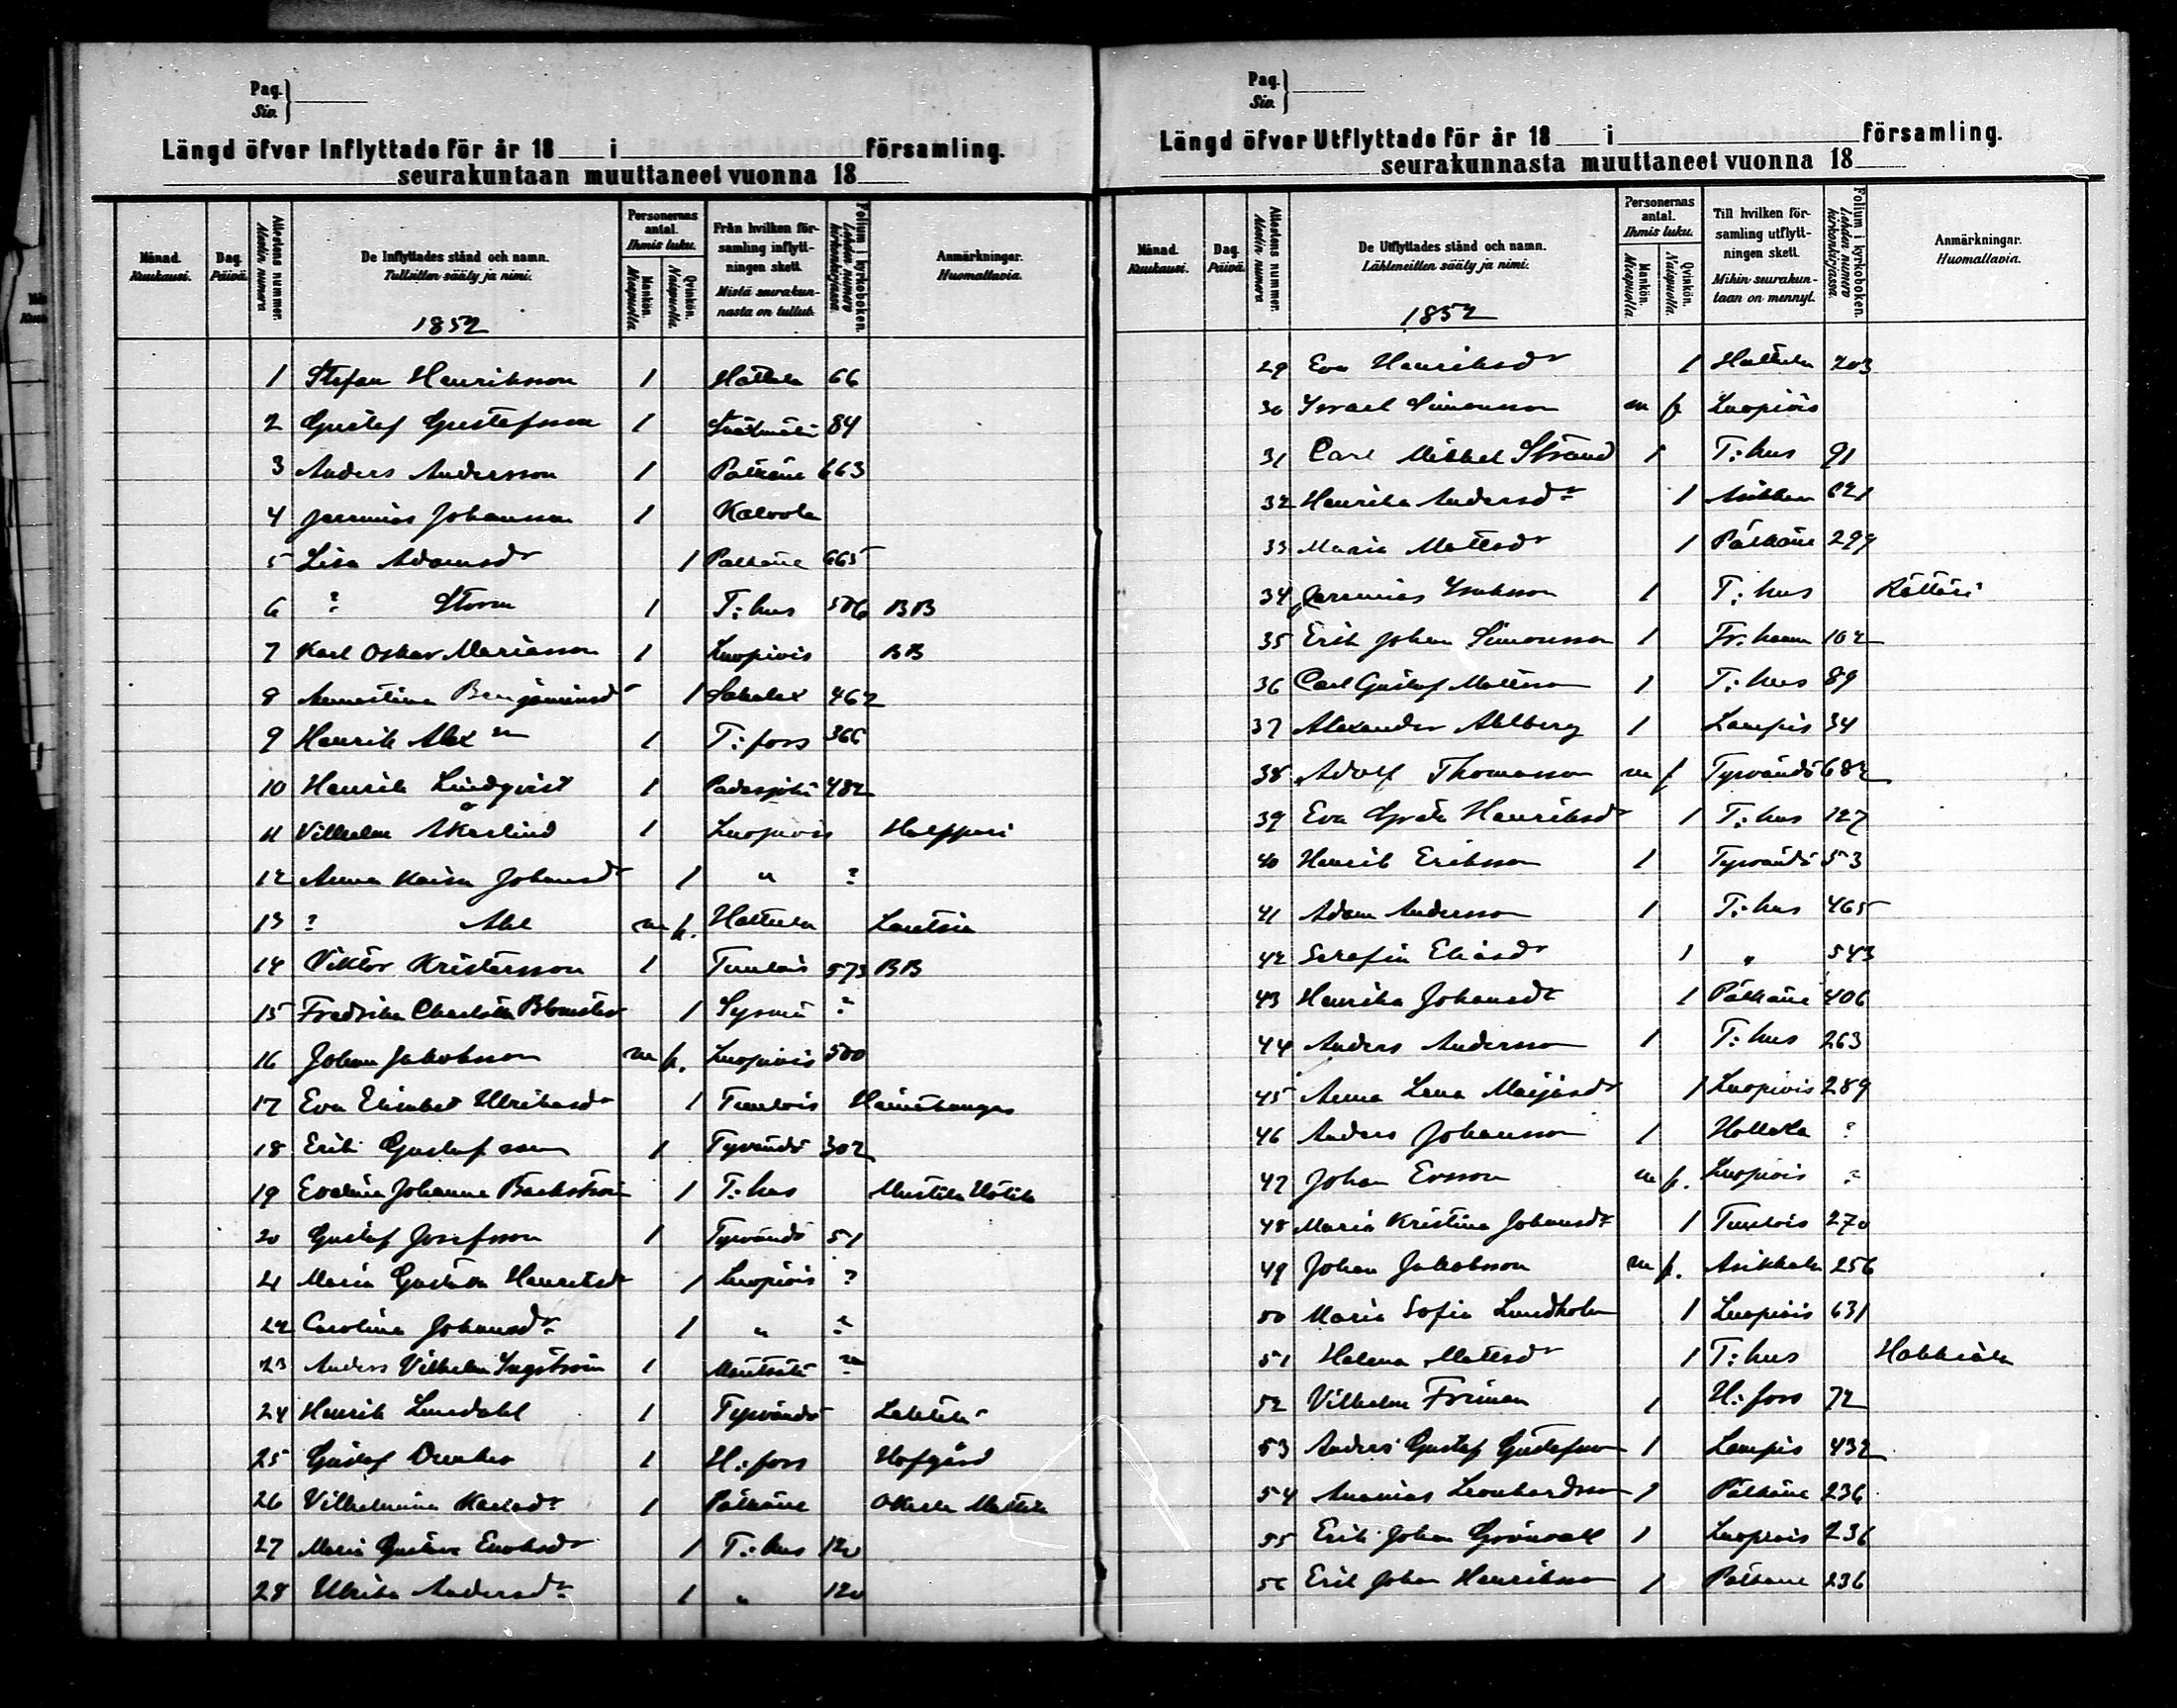 Pag.
Siv.
Längd öfver Inflyttade för år 18 i församling.
seurakuntaan muuttaneet vuonna 18
Månad. Kuukausi. Dag. Päivä. Attestens nummer. Atestin numero De Inflyttades stånd och namn. Tulleitten sääty ja nimi. Personernas antal. Ihmis luku. Mankön. Miespuolia. Qvinkön. Naispuolia. Från hvilken församling inflyttningen skett. Mistä seurakunnasta on tullut. Folium i kyrkoboken. Lehden numero kirkonkirjassa. Anmärkningar. Huomattavia.
1852
1 Stefan Henriksson 1 Hattula 66
2 Gustaf Gustafsson 1 84
3 Anders Andersson 1 Pälkäne 663
4 Jeremias Johansson 1 Kalvola
5 Lisa Adamsdr 1 Pälkäne 665
6 ? Storm 1 T:hus 506 BB
7 Karl Oskar Mariasson 1 Luopiois BB
8 Benjaminsdr 1 462
9 Henrik Alex 1 T:fors 366
10 Henrik Lindqvist 1 Padasjoki 482
11 Vilhelm Åkerlind 1 Luopiois
12 Anna Kaisa Johansdr 1 " ?
13 ? Abel m f. Hattula Lautsia
14 Viktor Kristersson 1 Tuulois 573 BB
15 Fredrika Charlotta Blomster 1 Sysmä ?
16 Johan Jakobsson m f. Luopiois 500
17 Eva Elisabet Ulriksdr 1 Tuulois
18 Erik Gustafsson 1 Tyrvändö 302
19 Evelina Johanna Backström 1 T:hus Mustila
20 Gustaf Josefsson 1 Tyrvändö 51
21 Maria Gustava Henriksdr 1 Luopiois ?
22 Carolina Johansdr 1 " ?
23 Anders Vilhelm Ingström 1 ?
24 Henrik Lundahl 1 Tyrvändö
25 Gustaf 1 H:fors Hofgård
26 Vilhelmina Karlsdr 1 Pälkäne
27 Maria Gustava Enoksdr 1 T:hus 120
28 Ulrika Andersdr 1 " 120
Pag.
Siv.
Längd öfver Utflyttade för år 18 i församling.
seurakunnasta muuttaneet vuonna 18
Månad. Kuukausi. Dag. Päivä. Attestens nummer. Atestin numero De Utflyttades stånd och namn. Lähteneitten sääty ja nimi. Personernas antal. Ihmis luku. Mankön. Miespuolia. Qvinkön. Naispuolia. Till hvilken församling utflyttningen skett. Mihin seurakuntaan on mennyt. Folium i kyrkoboken. Lehden numero kirkonkirjassa. Anmärkningar. Huomattavia.
1852
29 Eva Henriksdr 1 Hattula 203
30 Israel Simonsson m f Luopiois
31 Carl Mikkel Strand 1 T:hus 91
32 Henrika Andersdr 1 Asikkala 621
33 Maria Mattsdr 1 Pälkäne 299
34 Jeremias Isaksson 1 T:hus
35 Erik Johan Simonsson 1 Fr:hamn 102
36 Carl Gustaf Mattsson 1 T:hus 89
37 Alexander Ahlberg 1 Lampis 34
38 Adolf Thomasson m f Tyrvändö 682
39 Eva Greta Henriksdr 1 T:hus 127
40 Henrik Eriksson 1 Tyrvändö 53
41 Adam Andersson 1 T:hus 465
42 Serafia Eliasdr 1 " 543
43 Henrika Johansdr 1 Pälkäne 406
44 Anders Andersson 1 T:hus 263
45 Anna Lena Maijasdr 1 Luopiois 289
46 Anders Johansson 1 Hollola ?
47 Johan Ersson m f. Luopiois ?
48 Maria Kristina Johansdr 1 Tuulois 270
49 Johan Jakobsson m f. Asikkala 256
50 Maria Sofia Lundholm 1 Luopiois 631
51 Helena Mattsdr 1 T:hus
52 Vilhelm Friman 1 H:fors 72
53 Anders Gustaf Gustafsson 1 Lampis 432
54 Ananias Leonhardsson 1 Pälkäne 236
55 Erik Johan Grönvall 1 Luopiois 236
56 Erik Johan Henriksson 1 Pälkäne 236